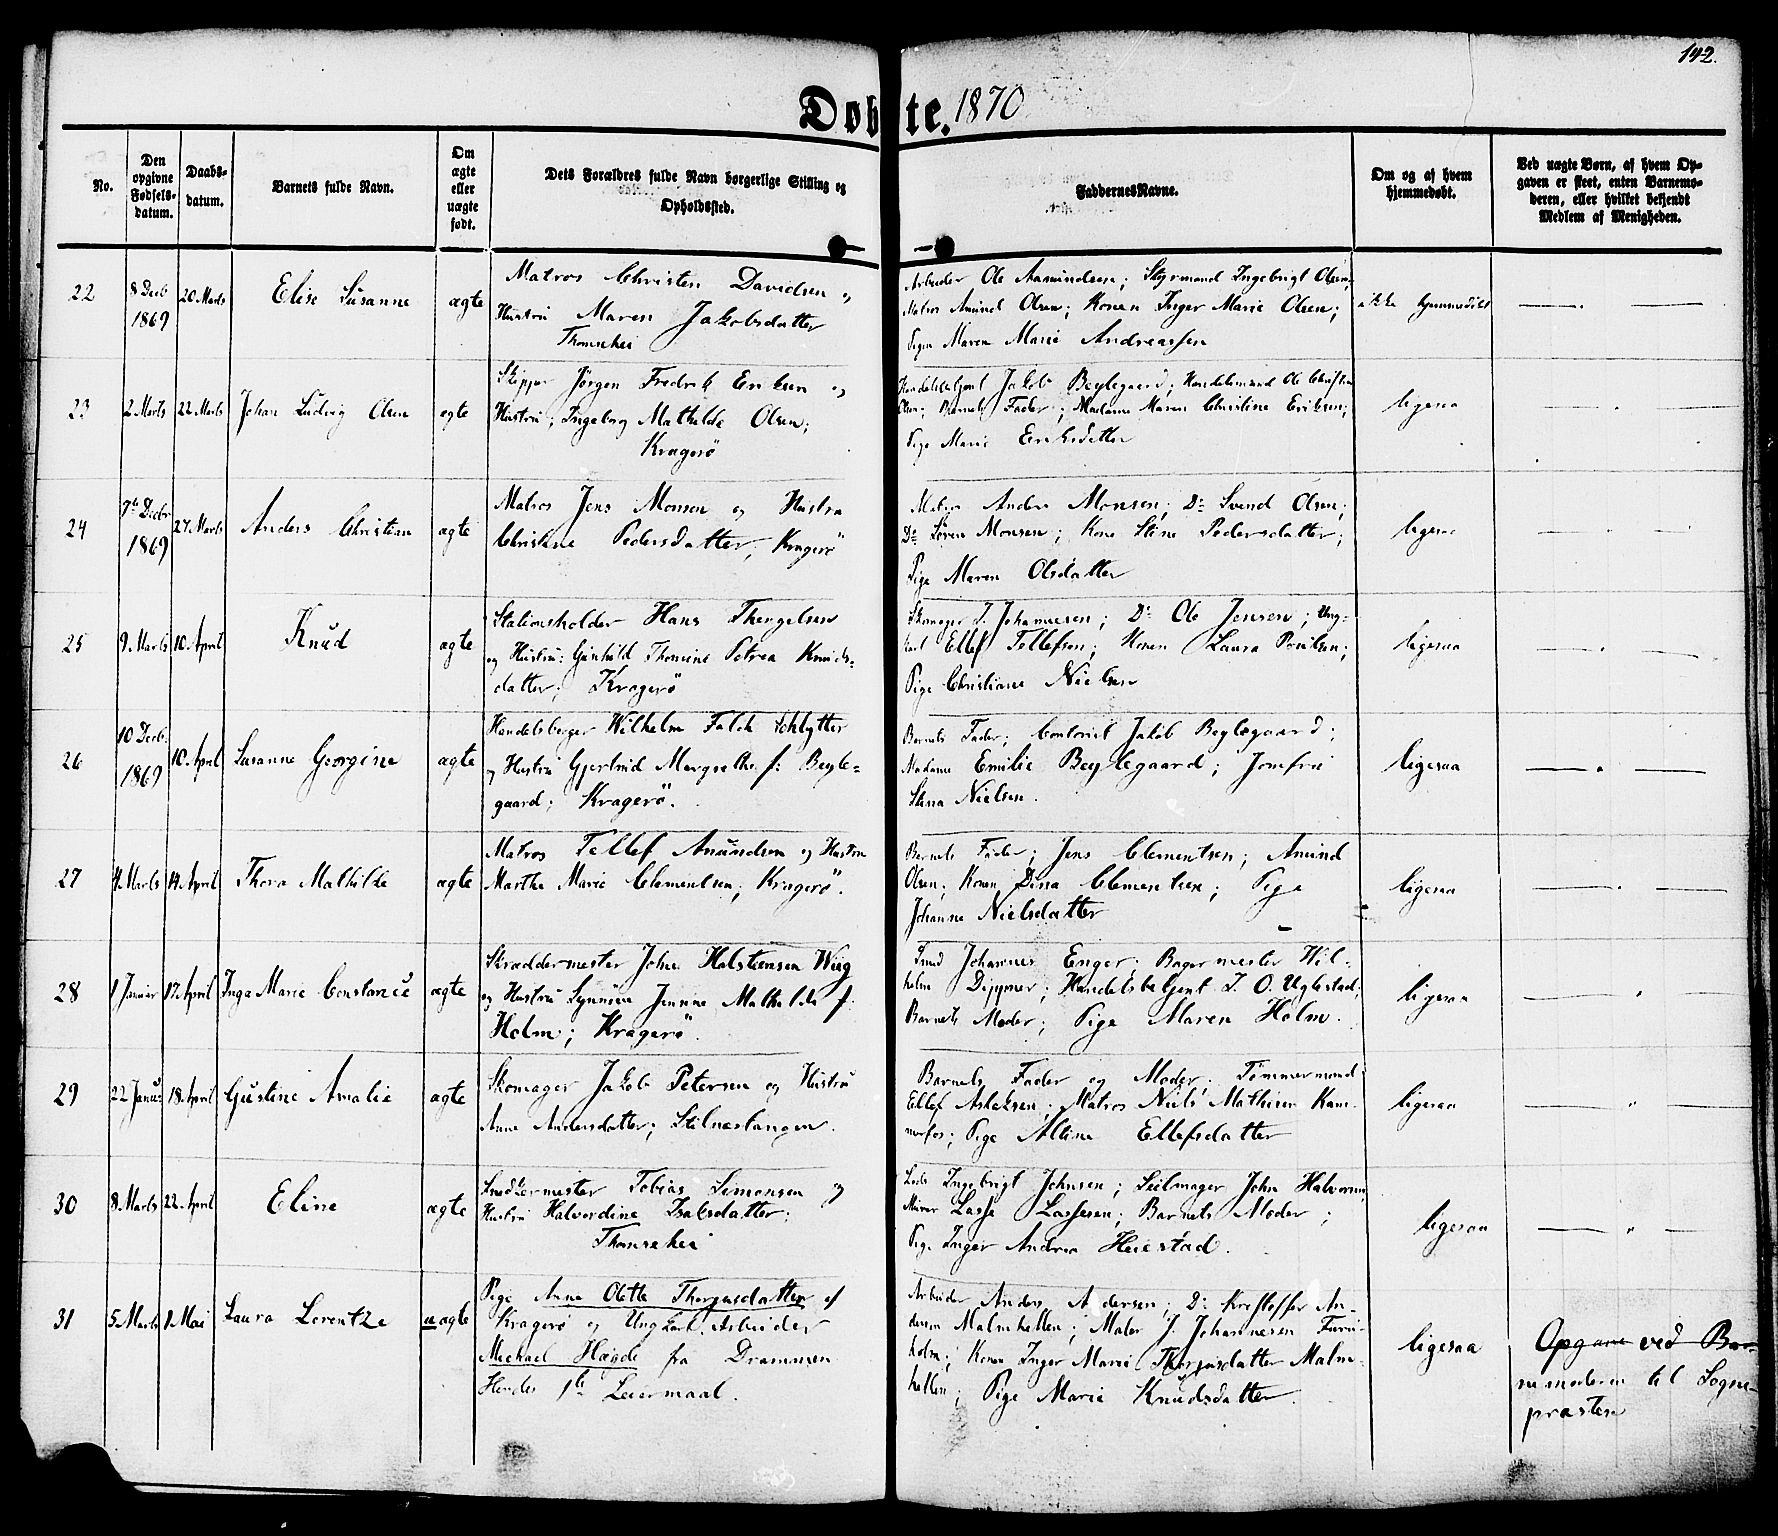 142.
Døbte. 1870
No.
Den opgivne Fødsels-datum.
Daabs-datum.
Barnets fulde Navn.
Om ægte eller uægte født.
Dets Forældres fulde Navn borgerlige Stilling og Opholdssted.
Faddernes Navne.
Om og af hvem hjemmedøbt.
Ved uægte Børn, af hvem Opgaven er skeet, enten Barnemoderen, eller hvilket bekjendt Medlem af Menigheden.
22 8 Decb 1869 20 Marts Elise Susanne ægte
Matros Christen Davidsen og
Hustru Maren Jakobsdatter
Thomsehei
Arbeider Ole Aamundsen; Styrmand Ingebrigt Olsen;
Matros Amund Olsen; Konen Inger Marie Olsen;
Pigen Maren Marie Andreassen
ikke hjemmedøbt
23 2 Marts 22 Marts Johan Ludvig Olsen ægte
Skipper Jørgen Fredrik Eriksen og
Hustru; Ingeborg Mathilde Olsen;
Kragerø
Handelsbetjent Jakob Beylegaard; Handelsmand Ole Christian
Olsen; Barnets Fader; Madame Maren Christine Eriksen;
Pige Marie Eriksdatter
ligesaa
24 7de Decbr 1869 27 Marts Anders Christian ægte
Matros Jens Monsen og Hustru
Christine Pedersdatter; Kragerø
Matros Anders Monsen; Do Svend Olsen;
Do Søren Monsen; Kone Stine Pedersdatter;
Pige Maren Olsdatter
ligesaa
25 9 Marts 10 April Knud ægte
Stationsholder Hans Thengelsen
og Hustru: Gunhild Thomine Petrea Knuds-
datter; Kragerø
Skomager J. Johannesen; Do Ole Jensen; Ung-
karl Ellef Tellefsen; Konen Laura Poulsen;
Pige Christiane Nielsen
ligesaa
26 10 Decb. 1869 10 April Susanne Georgine ægte
Handelsborger Wilhelm Falck Schlytter
og Hustru Gjertrud Margrethe f: Beyle-
gaard; Kragerø.
Barnets Fader; Contorist Jakob Beylegaard;
Madame Emilie Beylegaard; Jomfru
Stina Nielsen.
ligesaa
27 4 Marts 14 April Thora Mathilde ægte
Matros Tellef Anundsen og Hustru
Marthe Marie Clementsen; Kragerø.
Barnets Fader; Jens Clementsen; Amund
Olsen; Konen Dina Clementsen; Pige
Johanne Nielsdatter
ligesaa
28 1 Januar 17 April Inga Marie Constance ægte
Skræddermester John Halstensen Wiig
og Hustru Synnøve Jenne Mathilde f.
Holm; Kragerø.
Smed Johannes Enger; Bagermester Wil-
helm Dippner; Handelsbetjent T. O. Uglestad;
Barnets Moder; Pige Maren Holm.
ligesaa
29 22 Januar 18 April Gustine Amalie ægte
Skomager Jakob Petersen og Hustru
Anne Andersdatter; Stilnestangen.
Barnets Fader og Moder; Tømmermand
Ellef Aslaksen; Matros Niels Mathisen Kam-
merfos; Pige Altine Ellefsdatter
ligesaa
30 8 Marts 22 April Eline ægte
Snedkermester Tobias Simonsen og
Hustru Halvordine Isaksdatter;
Thomsehei
Lods Ingebrigt Johnsen; Seilmager John Halvorsen;
Murer Lasse Lassesen; Barnets Moder;
Pige Inger Andrea Heiestad.
ligesaa
31 5 Marts 1 Mai Laura Lorentze uægte
Pige Anne Olette Thorgusdatter af
Kragerø og Ungkarl, Arbeider
Michael Hagde fra Drammen
Hendes 1ste Leiermaal.
Arbeider Anders Andersen; Do Kristoffer An-
dersen Malmhellen; Maler J. Johannesen Furu-
holm; Konen Inger Marie Thorgusdatter Malm-
hellen; Pige Marie Knudsdatter.
ligesaa
Opgave ved Bar-
nemoderen til Sogne-
præsten